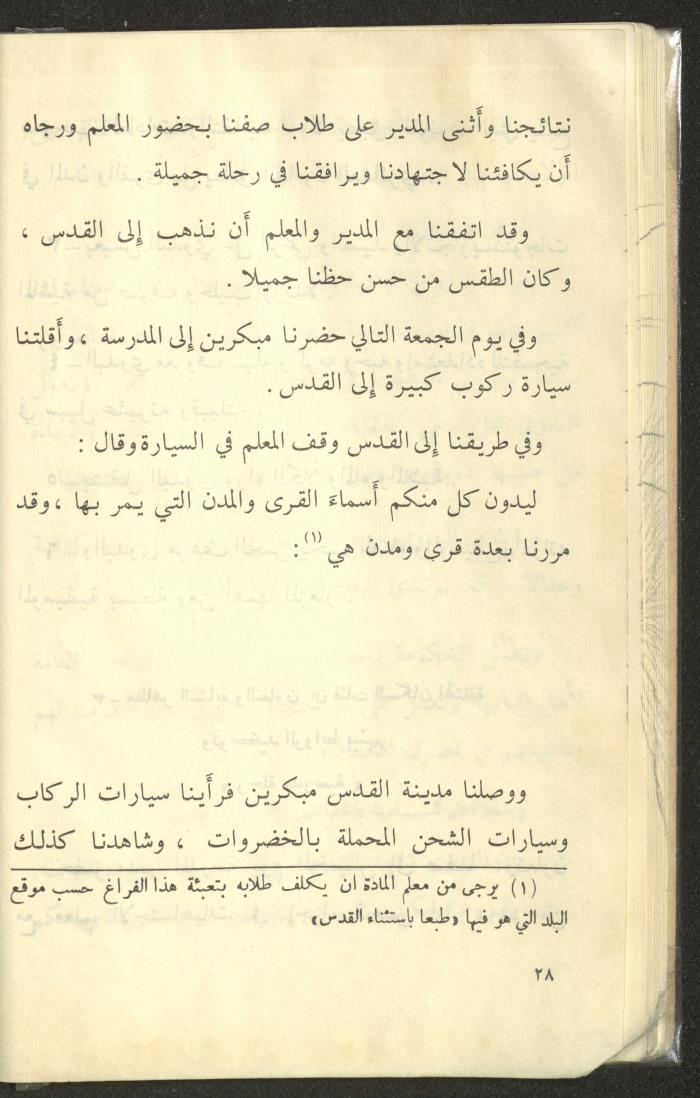 نتائجنا وأَثنى المدير على طلاب صفنا بحضور المعلم ورجاه
أَن يكافئنا لاجتهادنا ويرافقنا في رحلة جميلة .
وقد اتفقنا مع المدير والمعلم أَن نذهب إِلى القدس ،
وكان الطقس من حسن حظنا جميلا .
وفي يوم الجمعة التالي حضرنا مبكرين إِلى المدرسة ، وأَقلتنا
سيارة ركوب كبيرة إِلى القدس .
وفي طريقنا إِلى القدس وقف المعلم في السيارة وقال :
ليدون كل منكم أَسماءَ القرى والمدن التي يمر بها ، وقد
مررنا بعدة قرى ومدن هي (١) :
ووصلنا مدينة القدس مبكرين فرأَينا سيارات الركاب
وسيارات الشحن المحملة بالخضروات ، وشاهدنا كذلك
(١) يرجى من معلم المادة ان يكلف طلابه بتعبئة هذا الفراغ حسب موقع
البلد التي هو فيها «طبعا باستثناء القدس»
٢٨